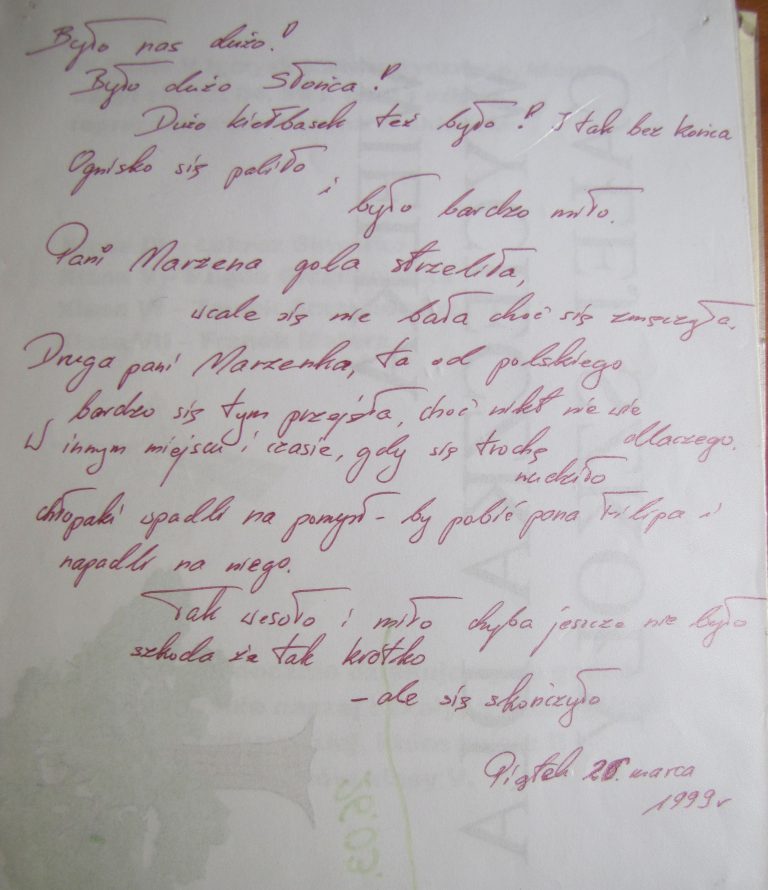 Było nas dużo!
Było dużo Słońca!
Dużo kiełbasek też było! I tak bez końca
Ognisko się paliło
i
było bardzo miło.
Pani Marzena gola strzeliła,
wcale się nie bała choć się zmęczyła.
Druga pani Marzenka, ta od polskiego
bardzo się tym przejęła, choć nikt nie wie
dlaczego.
W innym miejscu i czasie, gdy się trochę
nudziło
chłopaki wpadli na pomysł - by pobić pana Filipa i
napadli na niego.
Tak wesoło i miło chyba jeszcze nie było
szkoda że tak krótko
- ale się skończyło
Piątek 26. marca
1999 r
26.03.